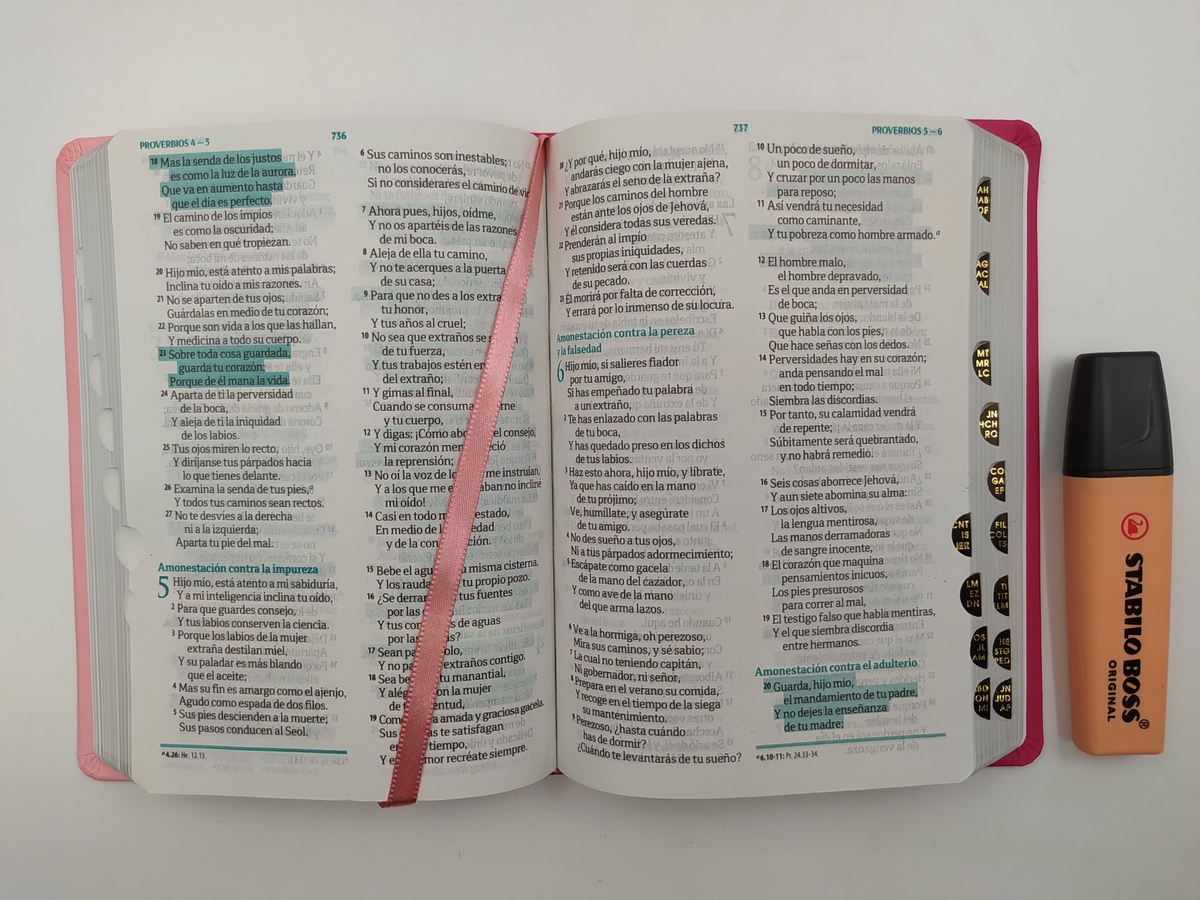 PROVERBIOS 4—5
736
18 Mas la senda de los justos
es como la luz de la aurora,
Que va en aumento hasta
que el día es perfecto.
19 El camino de los impíos
es como la oscuridad;
No saben en qué tropiezan.
20 Hijo mío, está atento a mis palabras;
Inclina tu oído a mis razones.
21 No se aparten de tus ojos;
Guárdalas en medio de tu corazón;
22 Porque son vida a los que las hallan,
Y medicina a todo su cuerpo.
23 Sobre toda cosa guardada,
guarda tu corazón;
Porque de él mana la vida.
24 Aparta de ti la perversidad
de la boca,
Y aleja de ti la iniquidad
de los labios.
25 Tus ojos miren lo recto,
Y diríjanse tus párpados hacia
lo que tienes delante.
26 Examina la senda de tus pies,a
Y todos tus caminos sean rectos.
27 No te desvíes a la derecha
ni a la izquierda;
Aparta tu pie del mal.
Amonestación contra la impureza
5 Hijo mío, está atento a mi sabiduría,
Y a mi inteligencia inclina tu oído,
2 Para que guardes consejo,
Y tus labios conserven la ciencia.
3 Porque los labios de la mujer
extraña destilan miel,
Y su paladar es más blando
que el aceite;
4 Mas su fin es amargo como el ajenjo,
Agudo como espada de dos filos.
5 Sus pies descienden a la muerte;
Sus pasos conducen al Seol.
a 4.26: He. 12.13.
6 Sus caminos son inestables;
no los conocerás,
Si no considerares el camino de
7 Ahora pues, hijos, oídme,
Y no os apartéis de las razones
de mi boca.
8 Aleja de ella tu camino,
Y no te acerques a la puerta
de su casa;
9 Para que no des a los
tu honor,
Y tus años al cruel;
10 No sea que extraños se
de tu fuerza,
Y tus trabajos estén en
del extraño;
11 Y gimas al final,
Cuando se consuma
y tu cuerpo,
12 Y digas: ¡Cómo el consejo,
Y mi corazón
la reprensión;
13 No oí la voz de me instruían,
Y a los que me
mi oído!
14 Casi en todo
En medio de
y de la
15 Bebe el misma cisterna,
Y los tu propio pozo.
16 ¿Se tus fuentes
por las
Y tus de aguas
por las
17 Sean
Y no extraños contigo.
18 Sea tu manantial,
Y la mujer
de
19 amada y graciosa gacela.
Sus te satisfagan
tiempo,
Y recréate siempre.
737
PROVERBIOS 5—6
20 ¿Y por qué, hijo mío,
andarás ciego con la mujer ajena,
Y abrazarás el seno de la extraña?
21 Porque los caminos del hombre
están ante los ojos de Jehová,
Y él considera todas sus veredas.
22 Prenderán al impío
sus propias iniquidades,
Y retenido será con las cuerdas
de su pecado.
23 Él morirá por falta de corrección,
Y errará por lo inmenso de su locura.
Amonestación contra la pereza
y la falsedad
6 Hijo mío, si salieres fiador
por tu amigo,
Si has empeñado tu palabra
a un extraño,
2 Te has enlazado con las palabras
de tu boca,
Y has quedado preso en los dichos
de tus labios.
3 Haz esto ahora, hijo mío, y líbrate,
Ya que has caído en la mano
de tu prójimo;
Ve, humíllate, y asegúrate
de tu amigo.
4 No des sueño a tus ojos,
Ni a tus párpados adormecimiento;
5 Escápate como gacela
de la mano del cazador,
Y como ave de la mano
del que arma lazos.
6 Ve a la hormiga, oh perezoso,
Mira sus caminos, y sé sabio;
7 La cual no teniendo capitán,
Ni gobernador, ni señor,
8 Prepara en el verano su comida,
Y recoge en el tiempo de la siega
su mantenimiento.
9 Perezoso, ¿hasta cuándo
has de dormir?
¿Cuándo te levantarás de tu sueño?
10 Un poco de sueño,
un poco de dormitar,
Y cruzar por un poco las manos
para reposo;
11 Así vendrá tu necesidad
como caminante,
Y tu pobreza como hombre armado.a
12 El hombre malo,
el hombre depravado,
Es el que anda en perversidad
de boca;
13 Que guiña los ojos,
que habla con los pies,
Que hace señas con los dedos.
14 Perversidades hay en su corazón;
anda pensando el mal
en todo tiempo;
Siembra las discordias.
15 Por tanto, su calamidad vendrá
de repente;
Súbitamente será quebrantado,
y no habrá remedio.
16 Seis cosas aborrece Jehová,
Y aun siete abomina su alma:
17 Los ojos altivos,
la lengua mentirosa,
Las manos derramadoras
de sangre inocente,
18 El corazón que maquina
pensamientos inicuos,
Los pies presurosos
para correr al mal,
19 El testigo falso que habla mentiras,
Y el que siembra discordia
entre hermanos.
Amonestación contra el adulterio
20 Guarda, hijo mío,
el mandamiento de tu padre,
Y no dejes la enseñanza
de tu madre;
a 6.10-11: Pr. 24.33-34.
STABILO BOSS®
ORIGINAL